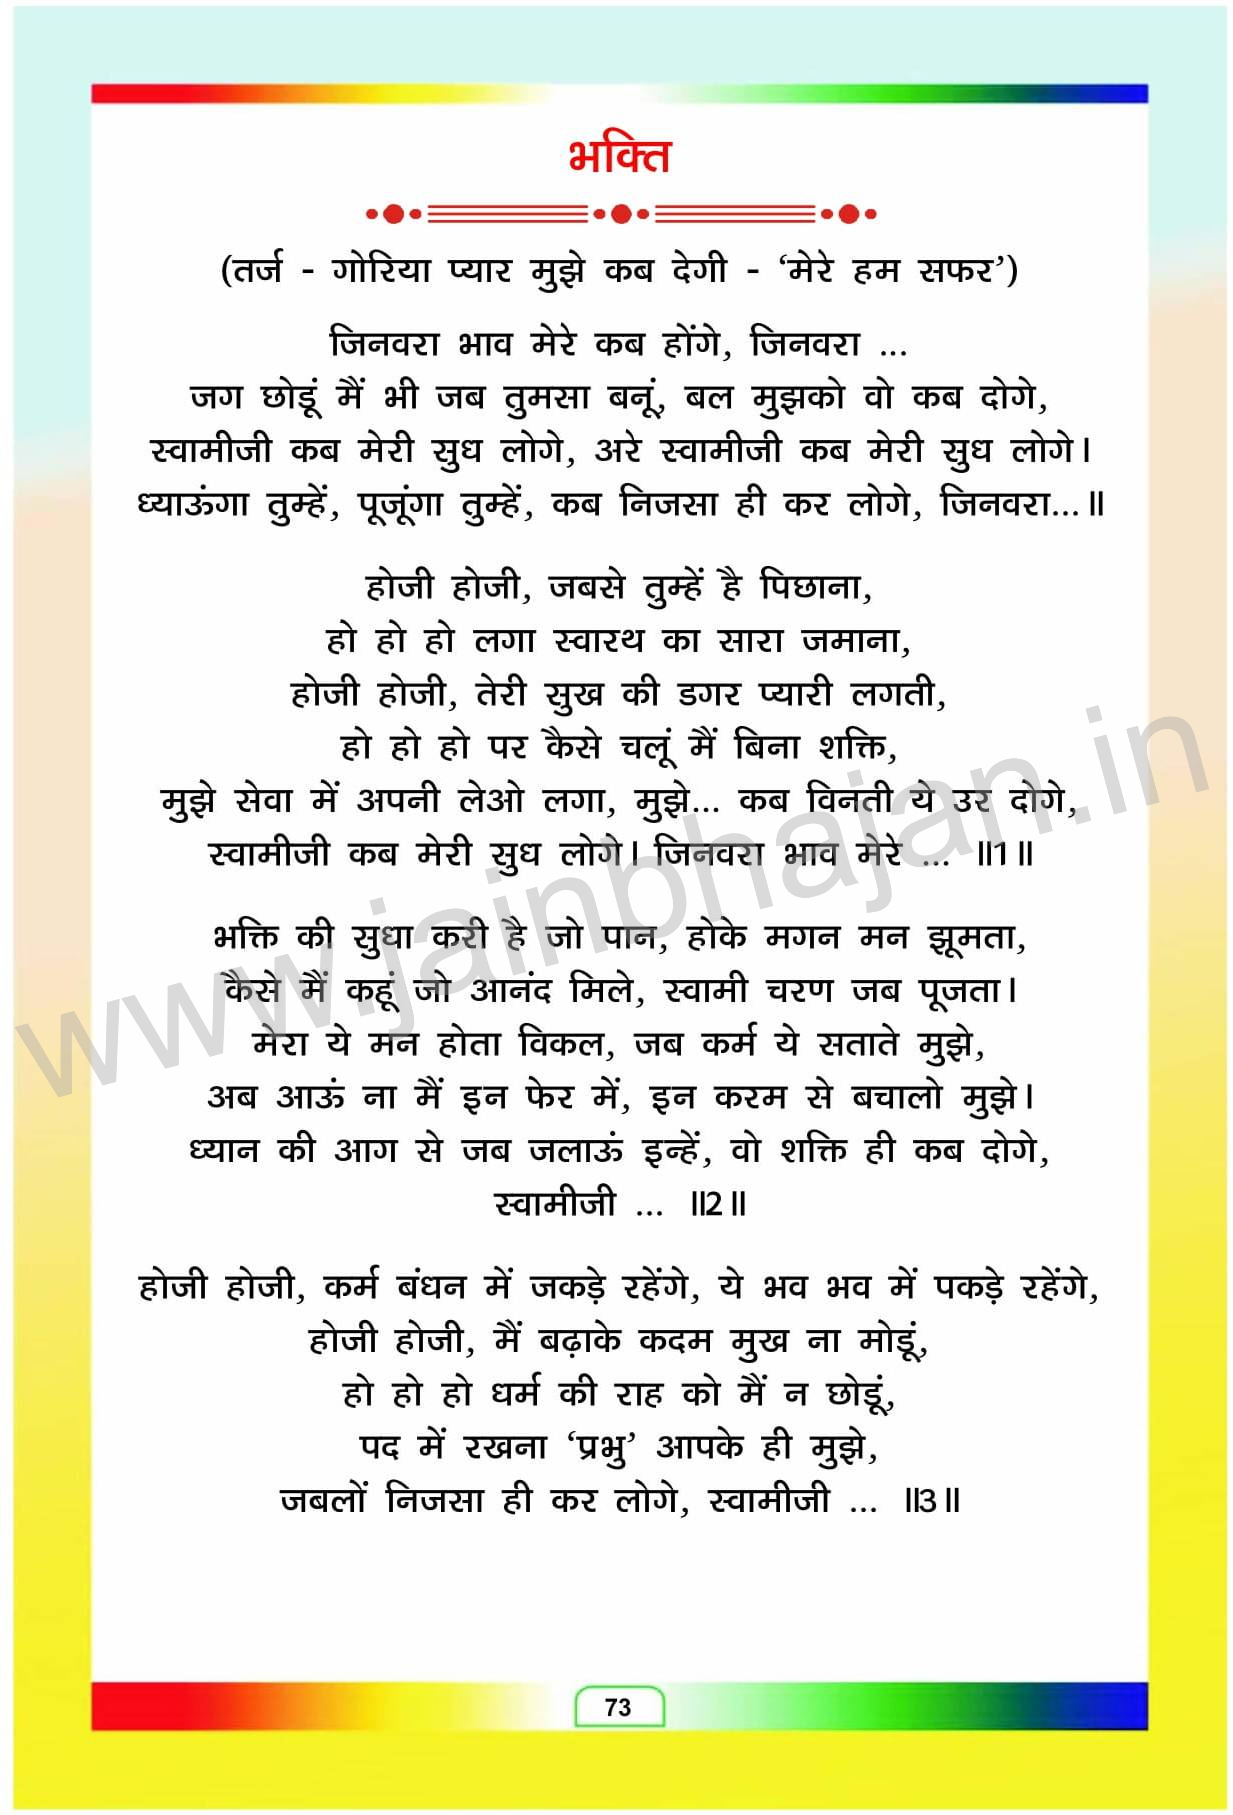 भक्ति
(तर्ज - गोरिया प्यार मुझे कब देगी - ‘मेरे हम सफर’)
जिनवरा भाव मेरे कब होंगे, जिनवरा ...
जग छोडूं मैं भी जब तुमसा बनूं, बल मुझको वो कब दोगे,
स्वामीजी कब मेरी सुध लोगे, अरे स्वामीजी कब मेरी सुध लोगे।
ध्याऊंगा तुम्हें, पूजूंगा तुम्हें, कब निजसा ही कर लोगे, जिनवरा...॥
होजी होजी, जबसे तुम्हें है पिछाना,
हो हो हो लगा स्वारथ का सारा जमाना,
होजी होजी, तेरी सुख की डगर प्यारी लगती,
हो हो हो पर कैसे चलूं मैं बिना शक्ति,
मुझे सेवा में अपनी लेओ लगा, मुझे... कब विनती ये उर दोगे,
स्वामीजी कब मेरी सुध लोगे। जिनवरा भाव मेरे ... ॥1॥
भक्ति की सुधा करी है जो पान, होके मगन मन झूमता,
कैसे मैं कहूं जो आनंद मिले, स्वामी चरण जब पूजता।
मेरा ये मन होता विकल, जब कर्म ये सताते मुझे,
अब आऊं ना मैं इन फेर में, इन करम से बचालो मुझे।
ध्यान की आग से जब जलाऊं इन्हें, वो शक्ति ही कब दोगे,
स्वामीजी ... ॥2॥
होजी होजी, कर्म बंधन में जकड़े रहेंगे, ये भव भव में पकड़े रहेंगे,
होजी होजी, मैं बढ़ाके कदम मुख ना मोडूं,
हो हो हो धर्म की राह को मैं न छोडूं,
पद में रखना ‘प्रभु’ आपके ही मुझे,
जबलों निजसा ही कर लोगे, स्वामीजी ... ॥3॥
www.jainbhajan.in
73